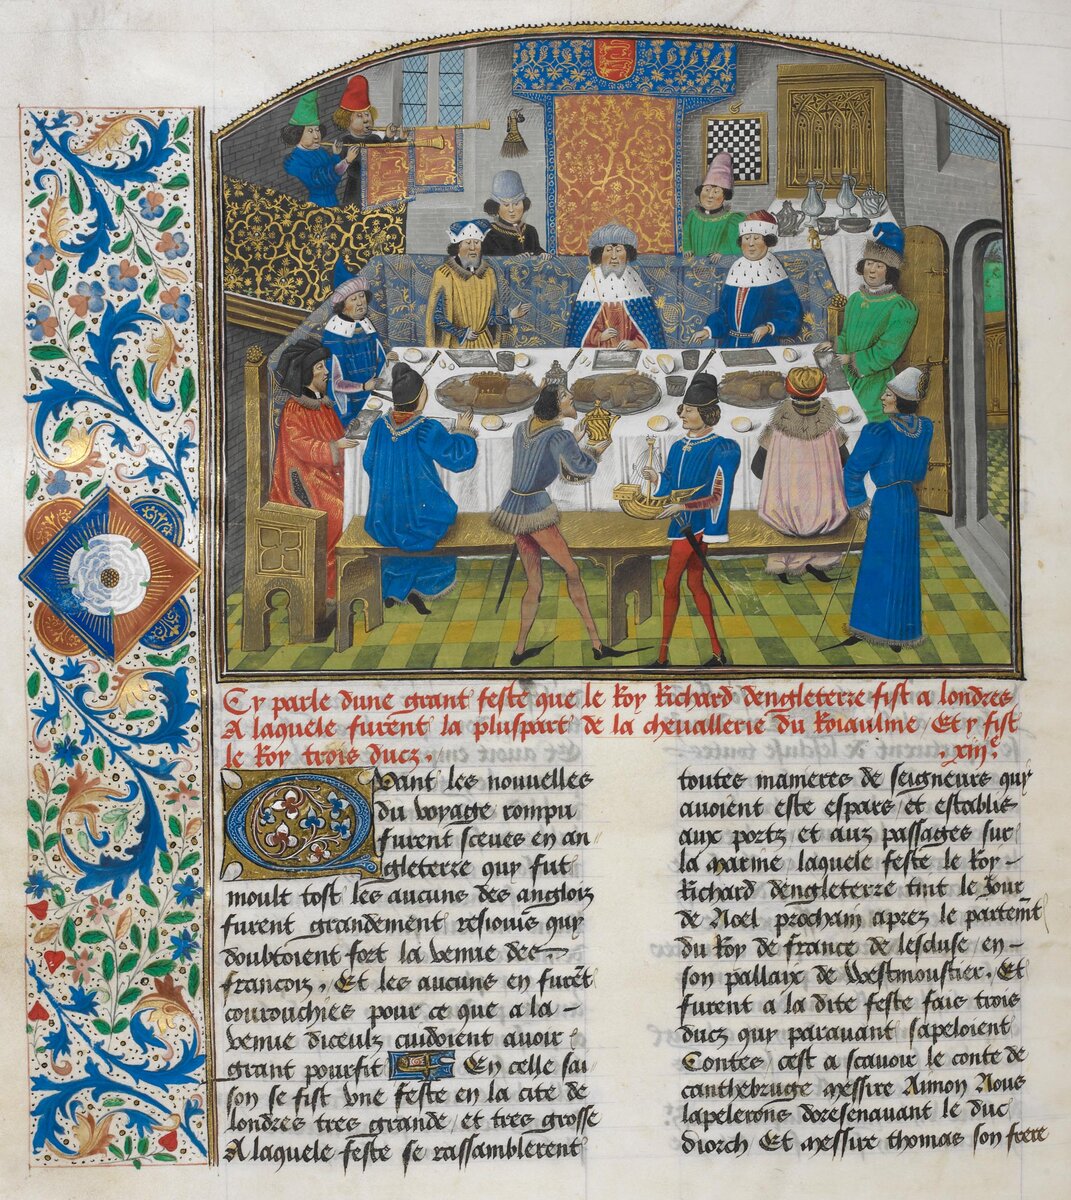 Cy parle dune grant feste que le Roy Richard dengleterre fist a londres
A laquele furent la pluspart de la chevallerie du Roiaulme / Et y fist
le Roy trois ducz .
xiii.ᵉ
Quant les nouvelles
du voyage rompu
furent sceues en an
gleterre quy fut
moult tost les aucuns des angloiz
furent grandement resiouis quy
doubtoient fort la venue des
francoiz . Et les aucuns en furẽt
courouchies pour ce que a la
venue diceulz cuidoient avoir
grant pourfit En celle sai
son se fist vne feste en la cite de
londres tres grande / et tres grosse
A laquele feste se rassamblerent
toutes manieres de seigneurs quy
avoient este espars / et establis
aux portz et aux passages sur
la marine / laquele feste le Roy
Richard dengleterre tint le Jour
de Noel prochain aprez le partemẽt
du Roy de france de lescluse en
son pallaix de Westmoustier . Et
furent a la dite feste fais trois
ducz quy paravant sapeloient
Contes / cest a scavoir le conte de
canthebruge messire Aimon Nous
lapelerons doresenavant le duc
diorch Et messire thomas son frere